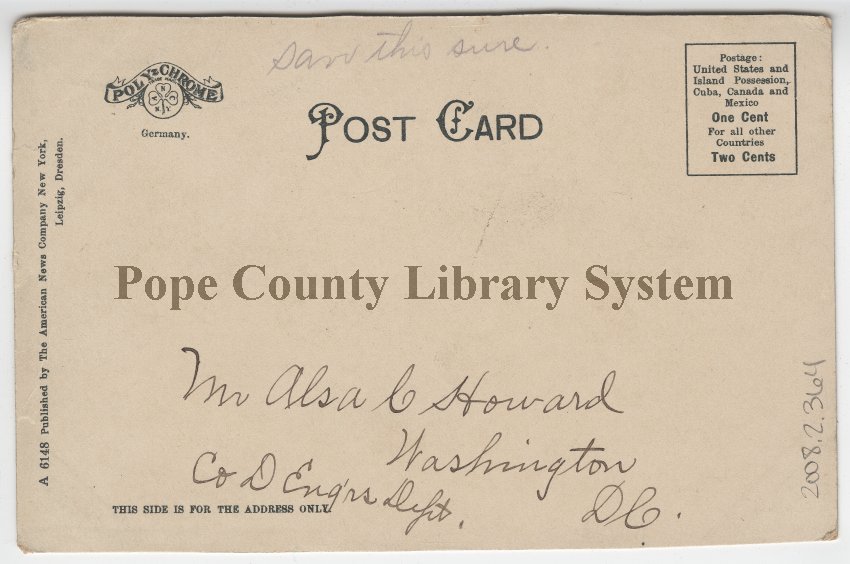 san this sure.
POLY-CHROME
Germany.
POST CARD
Postage:
United States and
Island Possession,
Cuba, Canada and
Mexico
One Cent
For all other
Countries
Two Cents
A 6148 Published by The American News Company New York,
Leipzig, Dresden.
Pope County Library System
Mr Alsa C Howard
Washington
Co D Eng'rs Dept.
D C.
THIS SIDE IS FOR THE ADDRESS ONLY.
2008.2.364